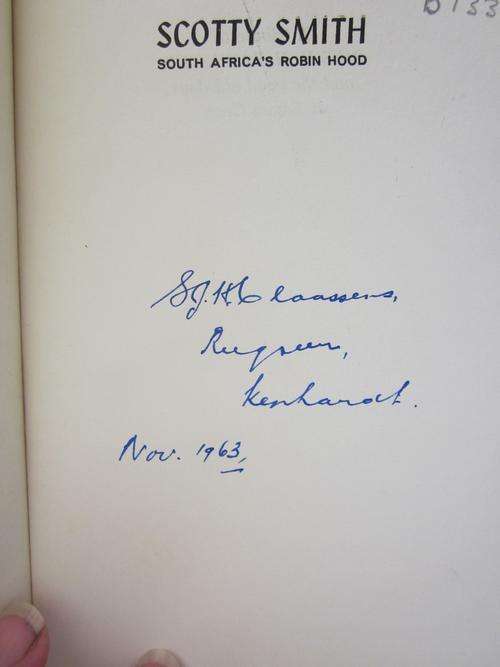 D 133
SCOTTY SMITH
SOUTH AFRICA'S ROBIN HOOD
S.J.H. Claassens,
Rugseer,
Kenhardt.
Nov. 1963,